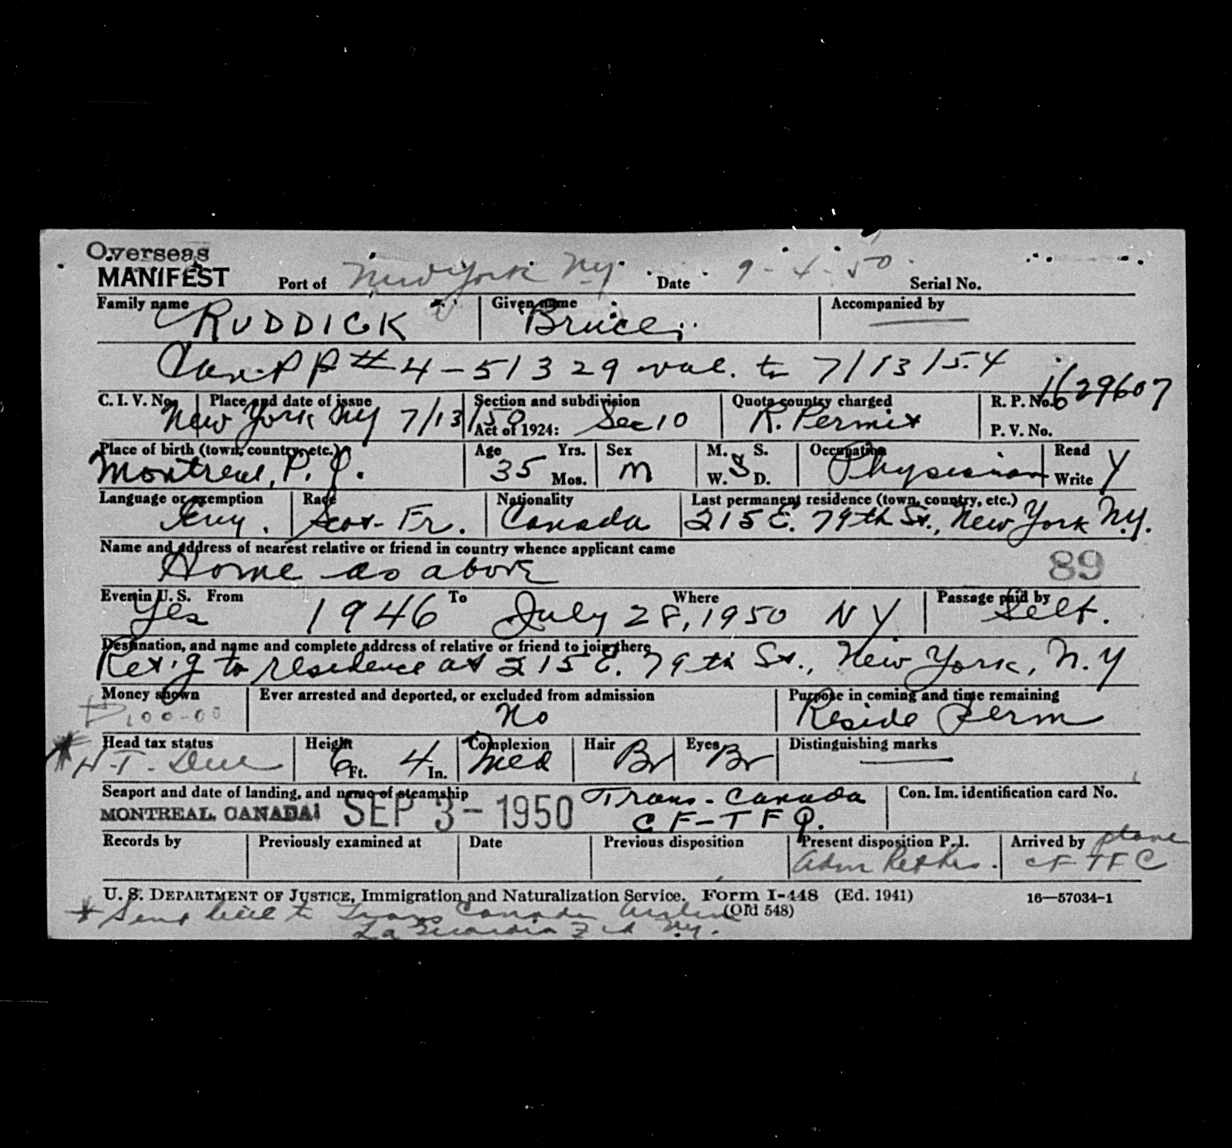 Overseas
MANIFEST Port of New York NY Date 9-4-50 Serial No.
Family name RUDDICK Given name Bruce Accompanied by
Can. PP # 4-51329 val. to 7/13/54
C. I. V. No. Place and date of issue Section and subdivision Quota country charged R. P. No. 1629607
New York NY 7/13/50 Act of 1924: Sec 10 R. Permit P. V. No.
Place of birth (town, country, etc.) Age Yrs. Sex M. S. Occupation Read
Montreal, P. Q. 35 Mos. M W. S D. Physician Write Y
Language or exemption Race Nationality Last permanent residence (town, country, etc.)
Eng. Scot-Fr. Canada 215 E. 79th St., New York N.Y.
Name and address of nearest relative or friend in country whence applicant came
Home as above 89
Ever in U. S. From To Where Passage paid by
Yes 1946 July 28, 1950 NY Self.
Destination, and name and complete address of relative or friend to join there
Ret'g to residence at 215 E. 79th St., New York, N.Y
Money shown Ever arrested and deported, or excluded from admission Purpose in coming and time remaining
$100-00 No Reside Perm
Head tax status Height Complexion Hair Eyes Distinguishing marks
* H.T. Due 6 Ft. 4 In. Med Br Br
Seaport and date of landing, and name of steamship Trans-Canada Con. Im. identification card No.
MONTREAL, CANADA SEP 3-1950 CF-TFQ.
Records by Previously examined at Date Previous disposition Present disposition P. I. Arrived by plane
Adm CF TFC
U. S. DEPARTMENT OF JUSTICE, Immigration and Naturalization Service. Form I-448 (Ed. 1941) 16—57034-1
(Old 548)
* Send bill to Trans Canada Airlines
La Guardia Fld NY.